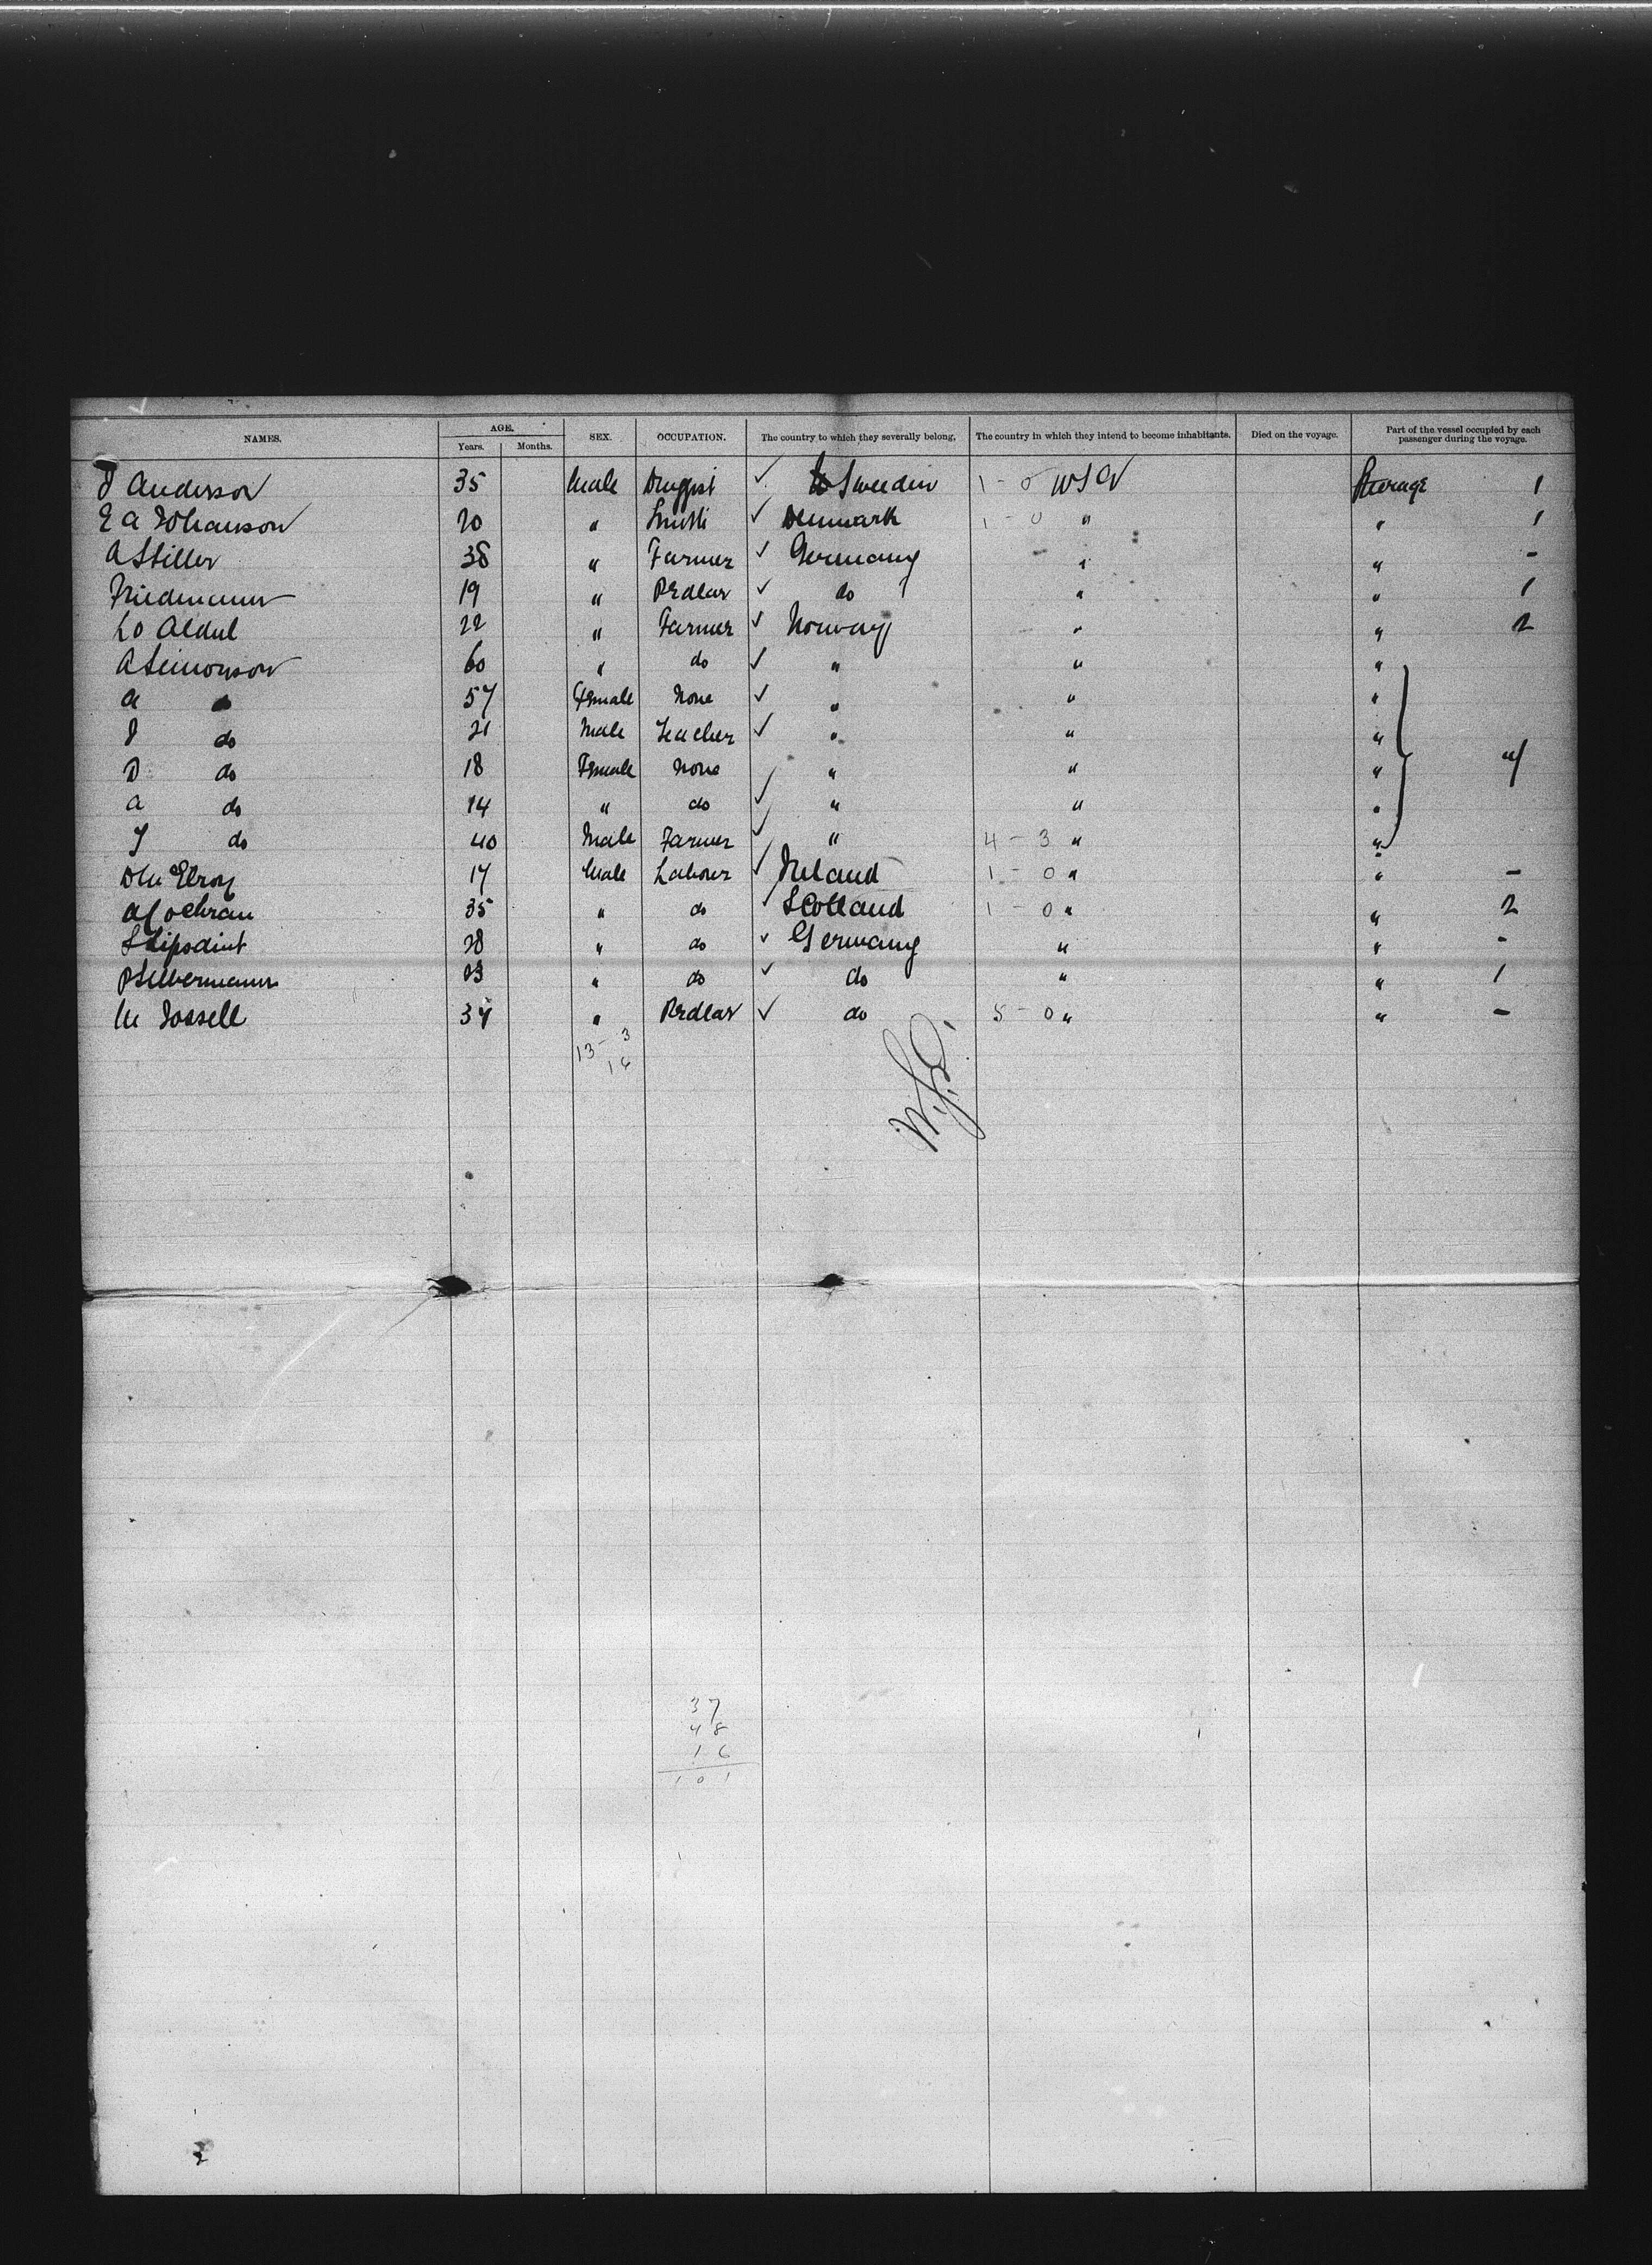 NAMES. AGE. Years. Months. SEX. OCCUPATION. The country to which they severally belong. The country in which they intend to become inhabitants. Died on the voyage. Part of the vessel occupied by each passenger during the voyage.
J Anderson 35 Male Druggist ✓ Sweeden 1 - 0 USA Steerage 1
E A Johanson 20 " Smith ✓ Denmark 1 - 0 " " 1
A Stiller 38 " Farmer ✓ Germany " " -
Friedmann 19 " Pedlar ✓ do " " 1
Farmer ✓ Norway " " 2
A Simonson 60 " do ✓ " " "
A do 57 Female None ✓ " " "
J do 21 Male Teacher ✓ " " "
D do 18 Female None " " " 4
A do 14 " do ✓ " " "
J do 40 Male Farmer ✓ " 4 - 3 " "
McElroy 17 Male Labour ✓ Ireland 1 - 0 " " -
A Cochran 35 " do ✓ Scotland 1 - 0 " " 2
S Lipsdint 28 " do ✓ Germany " " -
P Silbermann 23 " do ✓ do " " 1
M Jossell 34 " Pedlar ✓ do 5 - 0 " " -
13 - 3
16
37
48
16
101